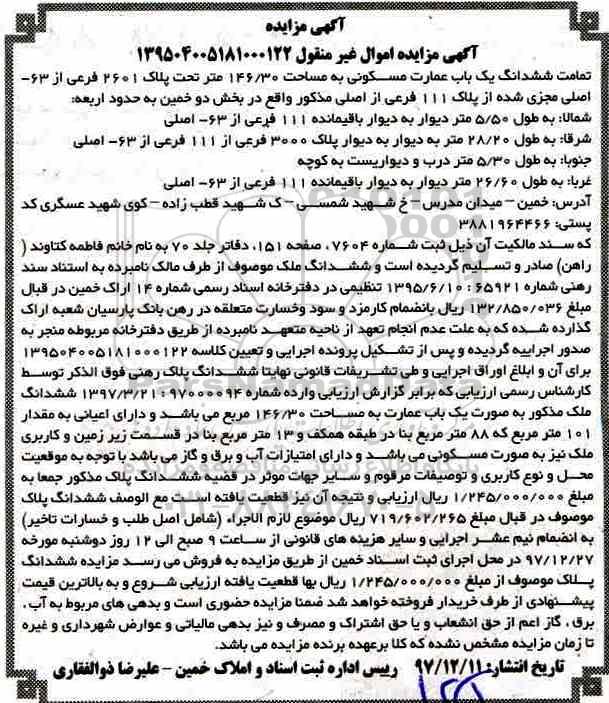 آگهی مزایده
آگهی مزایده اموال غیر منقول ۱۳۹۵۰۴۰۰۵۱۸۱۰۰۰۱۲۲
تمامت ششدانگ یک باب عمارت مسکونی به مساحت ۱۴۶/۳۰ متر تحت پلاک ۲۶۰۱ فرعی از ۶۳-
اصلی مجزی شده از پلاک ۱۱۱ فرعی از اصلی مذکور واقع در بخش دو خمین به حدود اربعه:
شمالا: به طول ۵/۵۰ متر دیوار به دیوار باقیمانده ۱۱۱ فرعی از ۶۳- اصلی
شرقا: به طول ۲۸/۲۰ متر به دیوار به دیوار پلاک ۳۰۰۰ فرعی از ۱۱۱ فرعی از ۶۳- اصلی
جنوبا: به طول ۵/۳۰ متر درب و دیواریست به کوچه
غربا: به طول ۲۶/۶۰ متر دیوار به دیوار باقیمانده ۱۱۱ فرعی از ۶۳- اصلی
آدرس: خمین – میدان مدرس – خ شهید شمسی – ک شهید قطب زاده – کوی شهید عسگری کد
پستی: ۳۸۸۱۹۶۴۴۶۶
که سند مالکیت آن ذیل ثبت شماره ۷۶۰۴ ، صفحه ۱۵۱، دفاتر جلد ۷۰ به نام خانم فاطمه کتاوند (
راهن) صادر و تسلیم گردیده است و ششدانگ ملک موصوف از طرف مالک نامبرده به استناد سند
رهنی شماره ۶۵۹۲۱ : ۱۳۹۵/۶/۱۰ تنظیمی در دفترخانه اسناد رسمی شماره ۱۴ اراک خمین در قبال
مبلغ ۱۳۲/۸۵۰/۰۳۶ ریال بانضمام کارمزد و سود وخسارت متعلقه در رهن بانک پارسیان شعبه اراک
گذارده شده که به علت عدم انجام تعهد از ناحیه متعهد نامبرده از طریق دفترخانه مربوطه منجر به
صدور اجراییه گردیده و پس از تشکیل پرونده اجرایی و تعیین کلاسه ۱۳۹۵۰۴۰۰۵۱۸۱۰۰۰۱۲۲
برای آن و ابلاغ اوراق اجرایی و طی تشریفات قانونی نهایتا ششدانگ پلاک رهنی فوق الذکر توسط
کارشناس رسمی ارزیابی که برابر گزارش ارزیابی وارده شماره ۹۷۰۰۰۰۹۴ : ۱۳۹۷/۳/۲۱ ششدانگ
ملک مذکور به صورت یک باب عمارت به مساحت ۱۴۶/۳۰ مربع می باشد و دارای اعیانی به مقدار
۱۰۱ متر مربع که ۸۸ متر مربع بنا در طبقه همکف و ۱۳ متر مربع بنا در قسمت زیر زمین و کاربری
ملک نیز به صورت مسکونی می باشد و دارای امتیازات آب و برق و گاز می باشد با توجه به موقعیت
محل و نوع کاربری و توصیفات مرقوم و سایر جهات موثر در قضیه ششدانگ پلاک مذکور جمعا به
مبلغ ۱/۲۴۵/۰۰۰/۰۰۰ ریال ارزیابی و نتیجه آن نیز قطعیت یافته است مع الوصف ششدانگ پلاک
موصوف در قبال مبلغ ۷۱۹/۶۰۲/۲۶۵ ریال موضوع لازم الاجراء (شامل اصل طلب و خسارات تاخیر)
به انضمام نیم عشر اجرایی و سایر هزینه های قانونی از ساعت ۹ صبح الی ۱۲ روز دوشنبه مورخه
۹۷/۱۲/۲۷ در محل اجرای ثبت اسناد خمین از طریق مزایده به فروش می رسد مزایده ششدانگ
پلاک موصوف از مبلغ ۱/۲۴۵/۰۰۰/۰۰۰ ریال بها قطعیت یافته ارزیابی شروع و به بالاترین قیمت
پیشنهادی از طرف خریدار فروخته خواهد شد ضمنا مزایده حضوری است و بدهی های مربوط به آب ،
برق ، گاز اعم از حق انشعاب و یا حق اشتراک و مصرف و نیز بدهی مالیاتی و عوارض شهرداری و غیره
تا زمان مزایده مشخص نشده که کلا برعهده برنده مزایده می باشد.
تاریخ انتشار: ۹۷/۱۲/۱۱ رییس اداره ثبت اسناد و املاک خمین – علیرضا ذوالفقاری